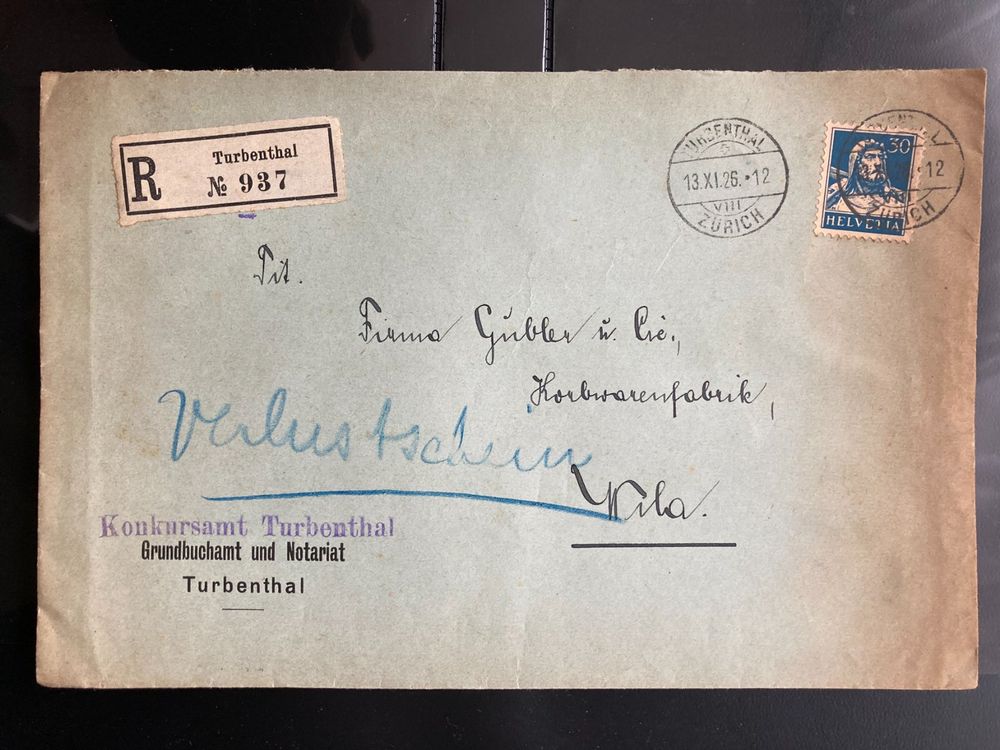 R
Turbenthal
№ 937
TURBENTHAL
13.XI.26.·12
VIII
ZÜRICH
30
HELVETIA
TURBENTHAL
·12
ZÜRICH
Tit.
Firma Gubler u. Cie.,
Korbwarenfabrik,
Verlustschein
Wila.
Konkursamt Turbenthal
Grundbuchamt und Notariat
Turbenthal